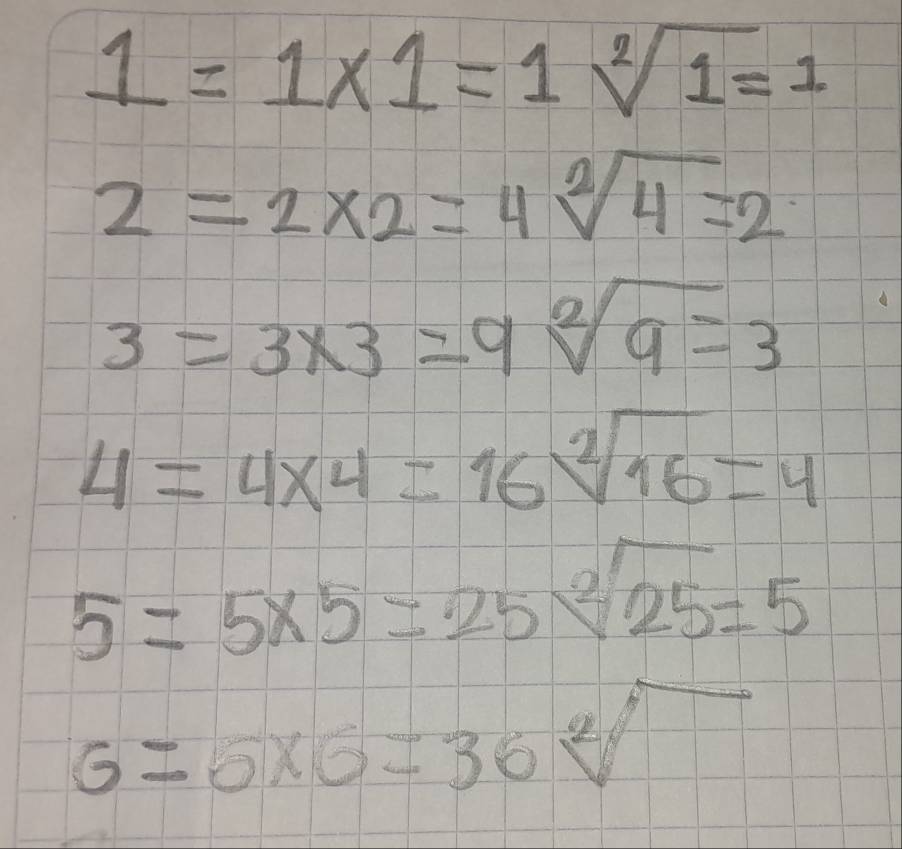 1 = 1 x 1 = 1 ²√1 = 1
2 = 2 x 2 = 4 ²√4 = 2
3 = 3 x 3 = 9 ²√9 = 3
4 = 4 x 4 = 16 ²√16 = 4
5 = 5 x 5 = 25 ²√25 = 5
6 = 6 x 6 = 36 ²√